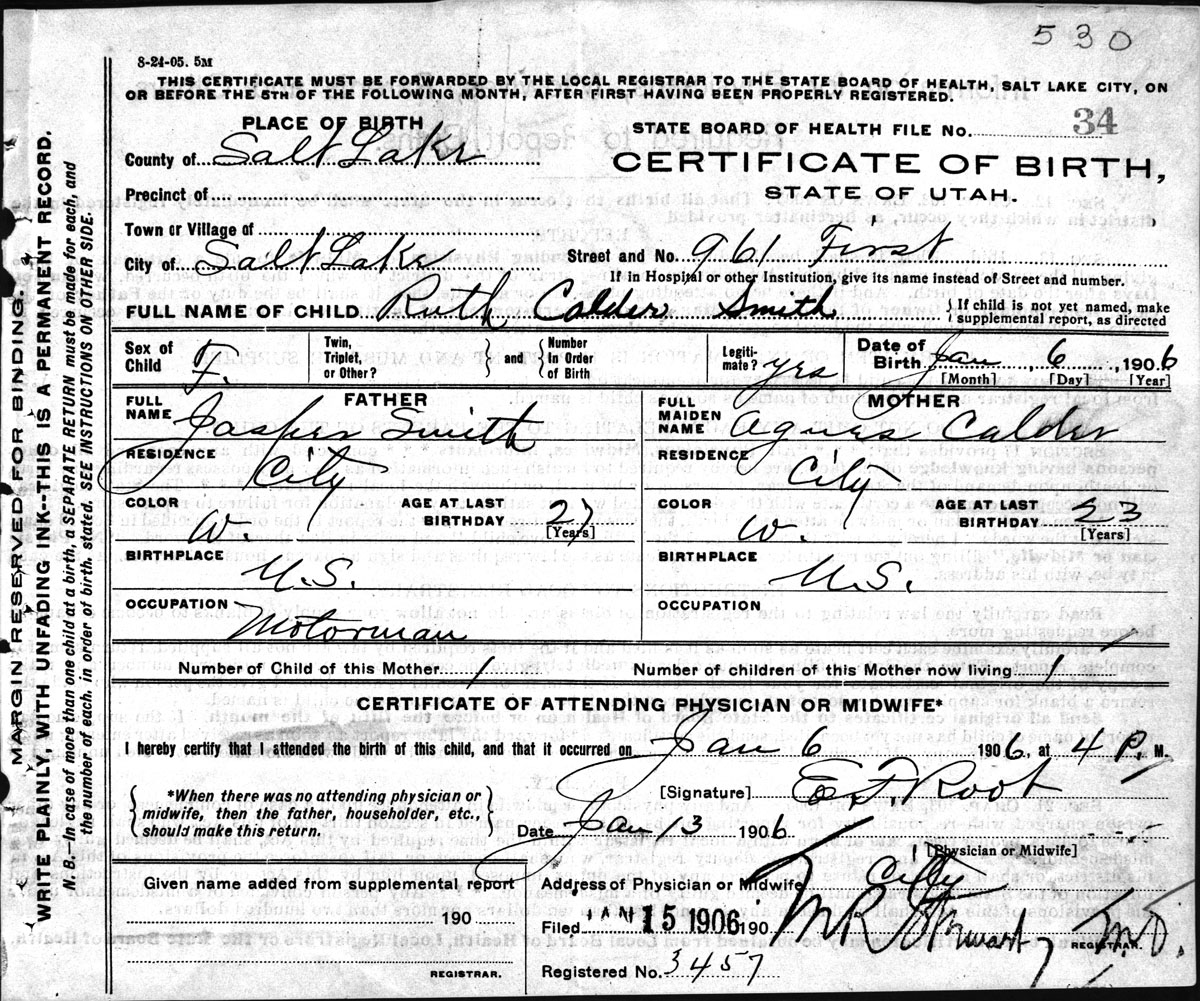 530
8-24-05. 5M
THIS CERTIFICATE MUST BE FORWARDED BY THE LOCAL REGISTRAR TO THE STATE BOARD OF HEALTH, SALT LAKE CITY, ON
OR BEFORE THE 5TH OF THE FOLLOWING MONTH, AFTER FIRST HAVING BEEN PROPERLY REGISTERED.
MARGIN RESERVED FOR BINDING.
WRITE PLAINLY, WITH UNFADING INK--THIS IS A PERMANENT RECORD.
N. B.—In case of more than one child at a birth, a SEPARATE RETURN must be made for each, and
the number of each, in order of birth, stated. SEE INSTRUCTIONS ON OTHER SIDE.
PLACE OF BIRTH
STATE BOARD OF HEALTH FILE No. 34
County of Salt Lake
CERTIFICATE OF BIRTH,
Precinct of
STATE OF UTAH.
Town or Village of
City of Salt Lake Street and No. 961 First
If in Hospital or other Institution, give its name instead of Street and number.
FULL NAME OF CHILD Ruth Calder Smith } If child is not yet named, make supplemental report, as directed
Sex of Child F. Twin, Triplet, or Other? } and { Number In Order of Birth Legiti-mate? yes Date of Birth Jan 6, 1906
[Month] [Day] [Year]
FATHER MOTHER
FULL NAME Jasper Smith FULL MAIDEN NAME Agnes Calder
RESIDENCE City RESIDENCE City
COLOR W. AGE AT LAST BIRTHDAY 27 [Years] COLOR W. AGE AT LAST BIRTHDAY 23 [Years]
BIRTHPLACE U.S. BIRTHPLACE U.S.
OCCUPATION Motorman OCCUPATION
Number of Child of this Mother 1 Number of children of this Mother now living 1
CERTIFICATE OF ATTENDING PHYSICIAN OR MIDWIFE*
I hereby certify that I attended the birth of this child, and that it occurred on Jan 6 1906, at 4 P. M.
{ *When there was no attending physician or midwife, then the father, householder, etc., should make this return. }
[Signature] E. F. Root
Date Jan 13 1906
[Physician or Midwife]
Given name added from supplemental report
Address of Physician or Midwife City
190
Filed JAN 15 1906 190 M.D.
REGISTRAR.
REGISTRAR.
Registered No. 3457